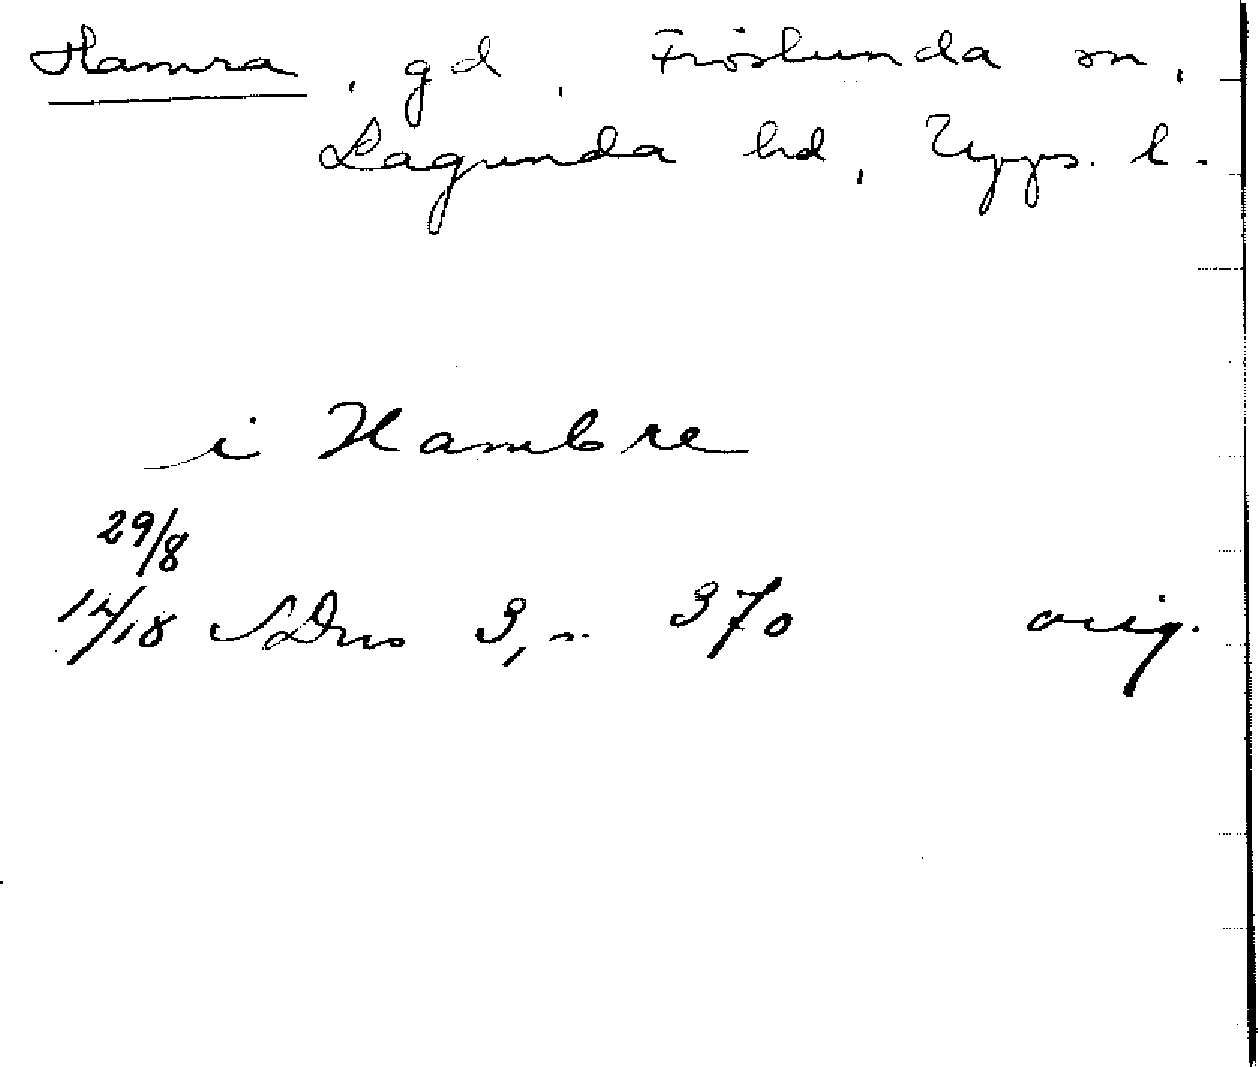 Hamra, gd, Fröslunda sn,
Lagunda hd, Upps. l.
i Hambre
29/8
14/18 SDns 3, s. 370 orig.